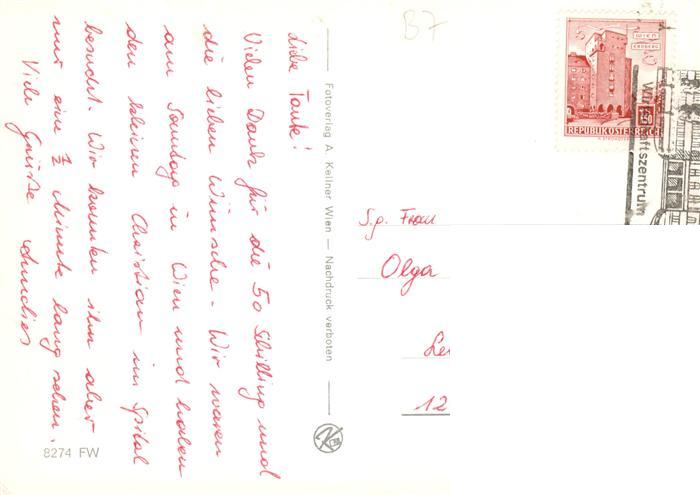 Liebe Tante!
Vielen Dank für die 50 Schilling und
die lieben Wünsche. Wir waren
am Sonntag in Wien und haben
den kleinen Christian im Spital
besucht. Wir konnten ihn aber
nur eine ½ Minute lang sehen.
Viele Grüße
8274 FW
Fotoverlag A. Kellner Wien — Nachdruck verboten
B7
WIEN
ERDBERG
1.50
REPUBLIK ÖSTERREICH
S.g. Frau
Olga
12